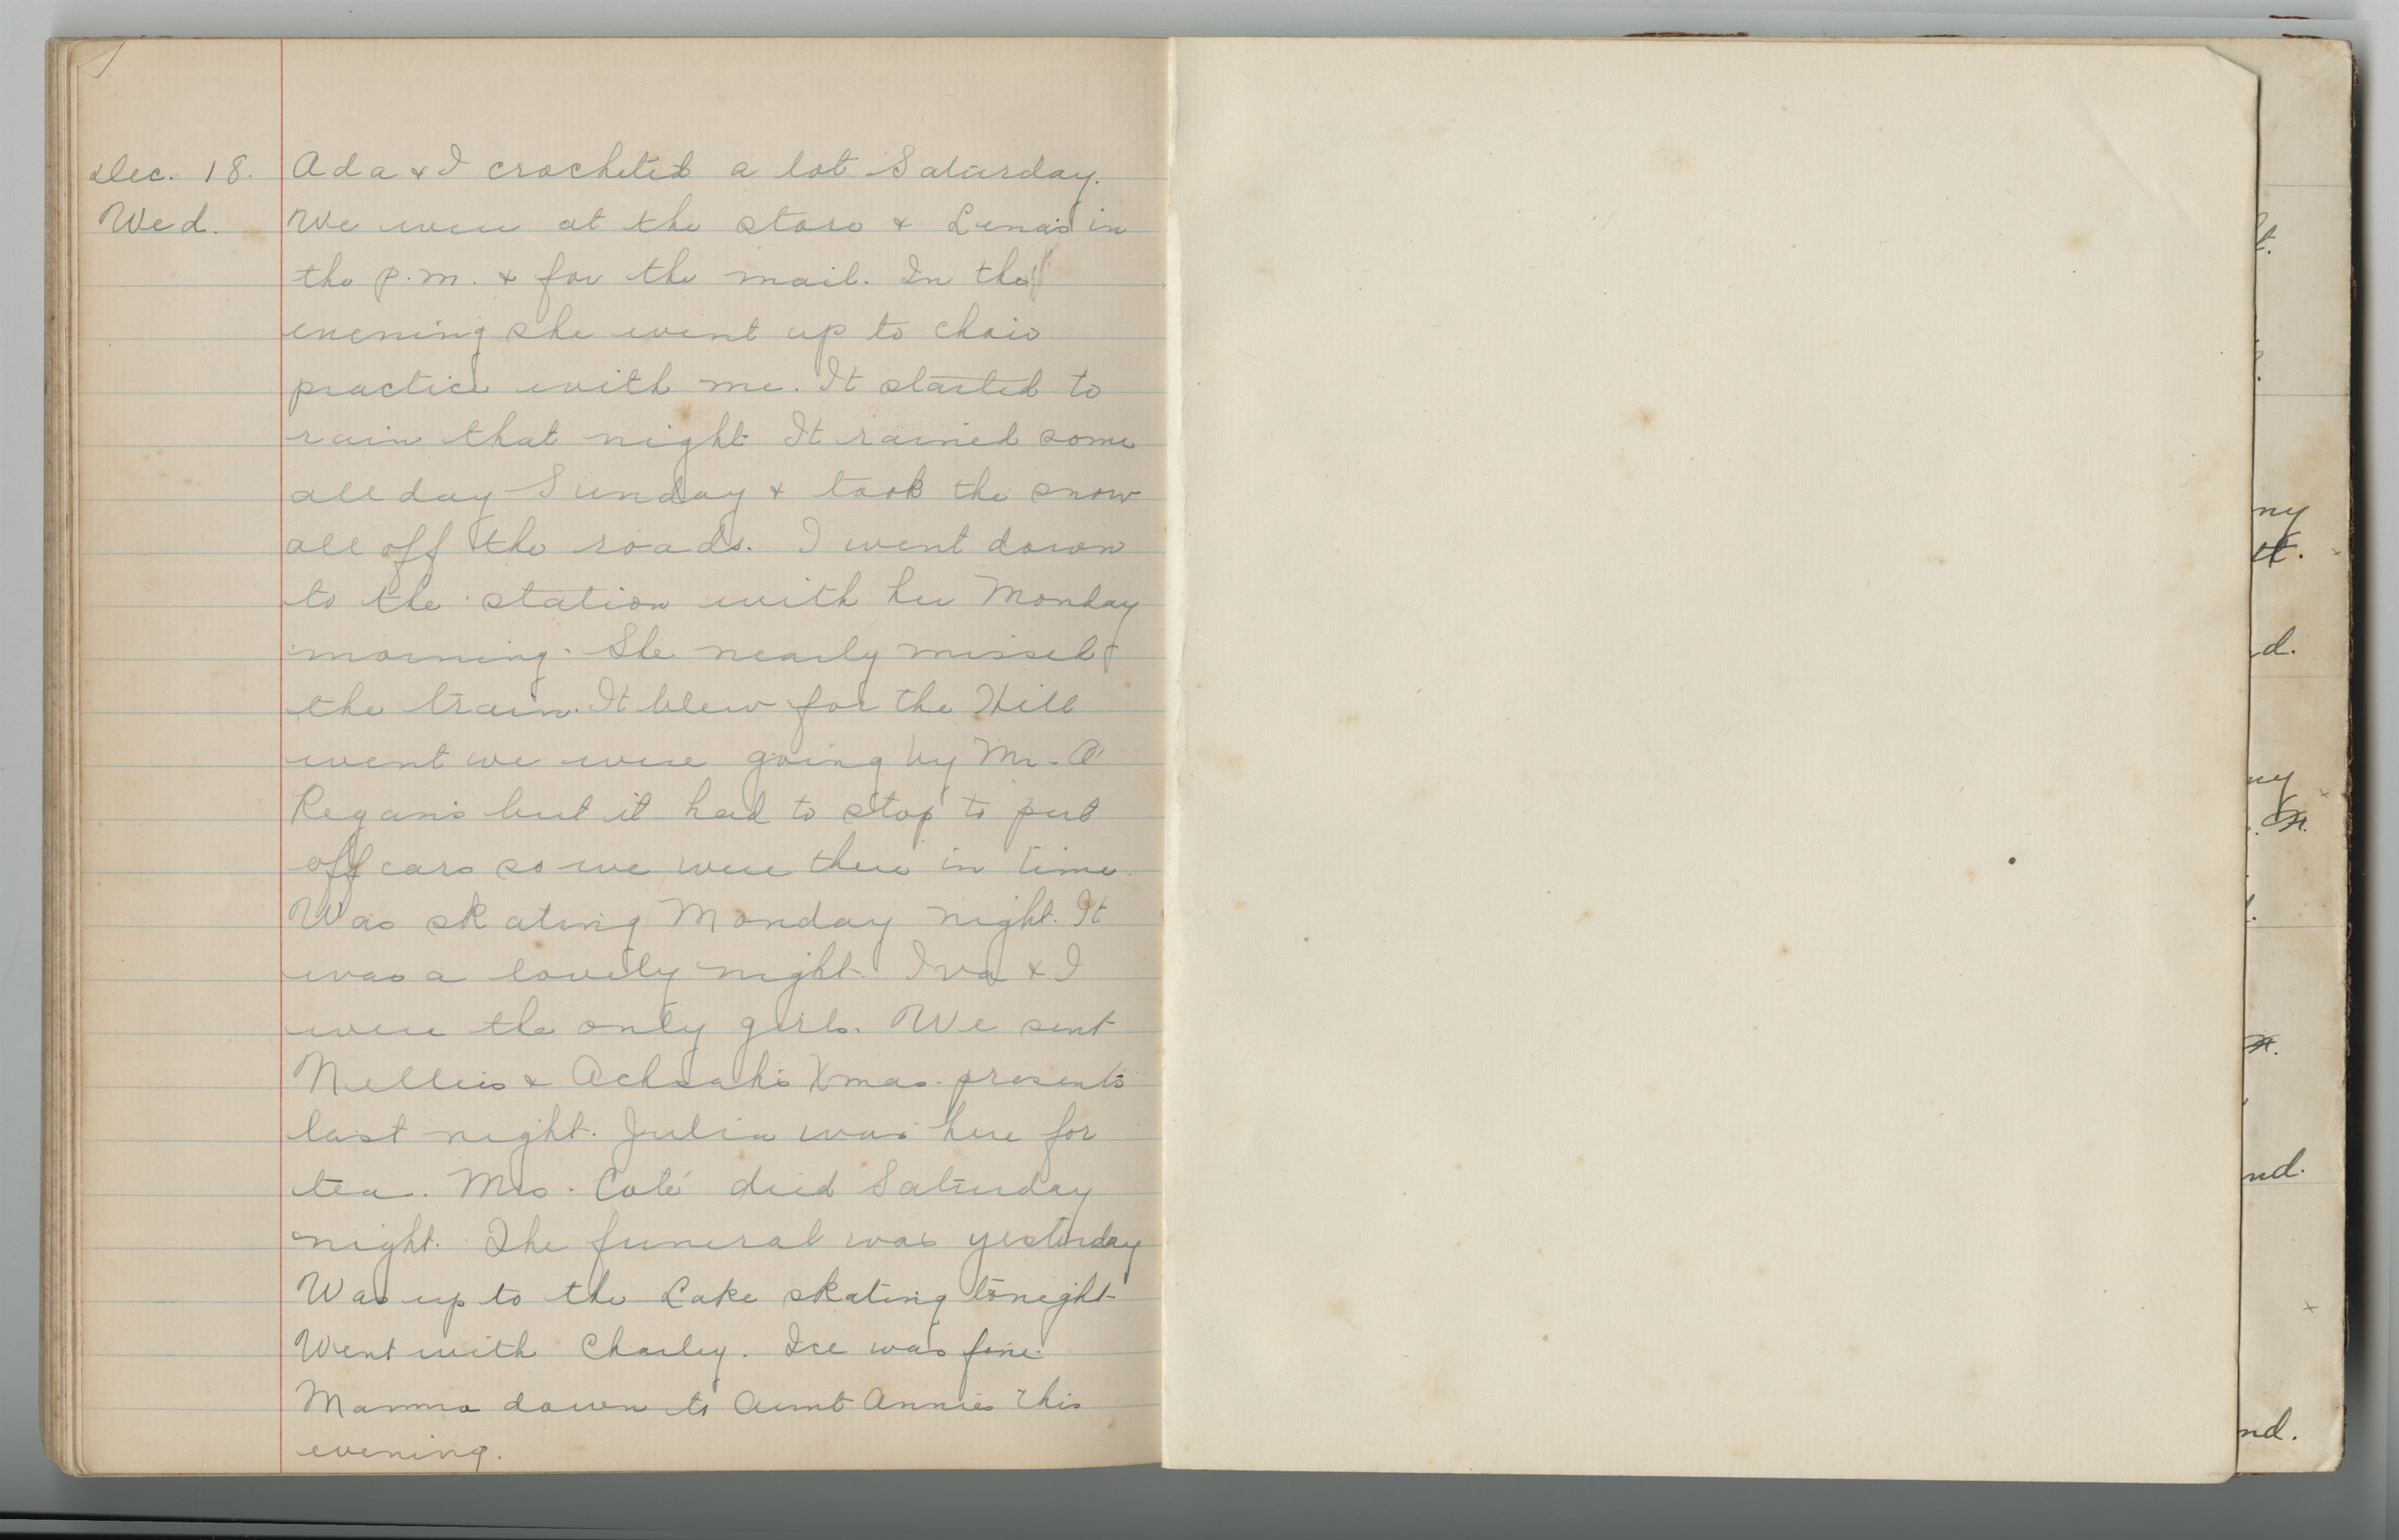 Dec. 18. Ada & I crocheted a lot Saturday.
Wed. We were at the store & Lena's in
the p.m. & for the mail. In the
evening she went up to choir
practice with me. It started to
rain that night It rained some
all day Sunday & took the snow
all off the roads. I went down
to the station with her Monday
morning. She nearly missed
the train. It blew for the Hill
went we were going by Mr. O'
Regans but it had to stop to put
off cars so we were there in time.
Was skating Monday night. It
was a lovely night. Iva & I
were the only girls. We sent
Nellies & Achsah's Xmas. presents
last night. Julia was here for
tea. Mrs. Colé died Saturday
night. The funeral was yesterday
Was up to the Lake skating tonight
Went with Charley. Ice was fine.
Mamma down to Aunt Annies this
evening.
ny
d.
ny
nd.
nd.